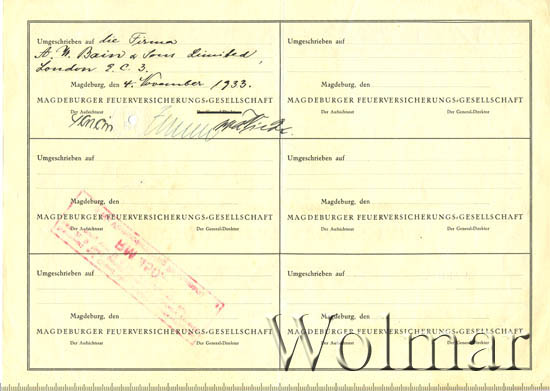 Umgeschrieben auf die Firma
A. W. Bain & Sons Limited,
London E.C. 3.
Magdeburg, den 4. November 1933.
MAGDEBURGER FEUERVERSICHERUNGS-GESELLSCHAFT
Der Aufsichtsrat Der General-Direktor
Umgeschrieben auf
Magdeburg, den
MAGDEBURGER FEUERVERSICHERUNGS-GESELLSCHAFT
Der Aufsichtsrat Der General-Direktor
Umgeschrieben auf
Magdeburg, den
MAGDEBURGER FEUERVERSICHERUNGS-GESELLSCHAFT
Der Aufsichtsrat Der General-Direktor
Umgeschrieben auf
Magdeburg, den
MAGDEBURGER FEUERVERSICHERUNGS-GESELLSCHAFT
Der Aufsichtsrat Der General-Direktor
Umgeschrieben auf
Magdeburg, den
MAGDEBURGER FEUERVERSICHERUNGS-GESELLSCHAFT
Der Aufsichtsrat Der General-Direktor
Umgeschrieben auf
Magdeburg, den
MAGDEBURGER FEUERVERSICHERUNGS-GESELLSCHAFT
Der Aufsichtsrat
RM
Wolmar